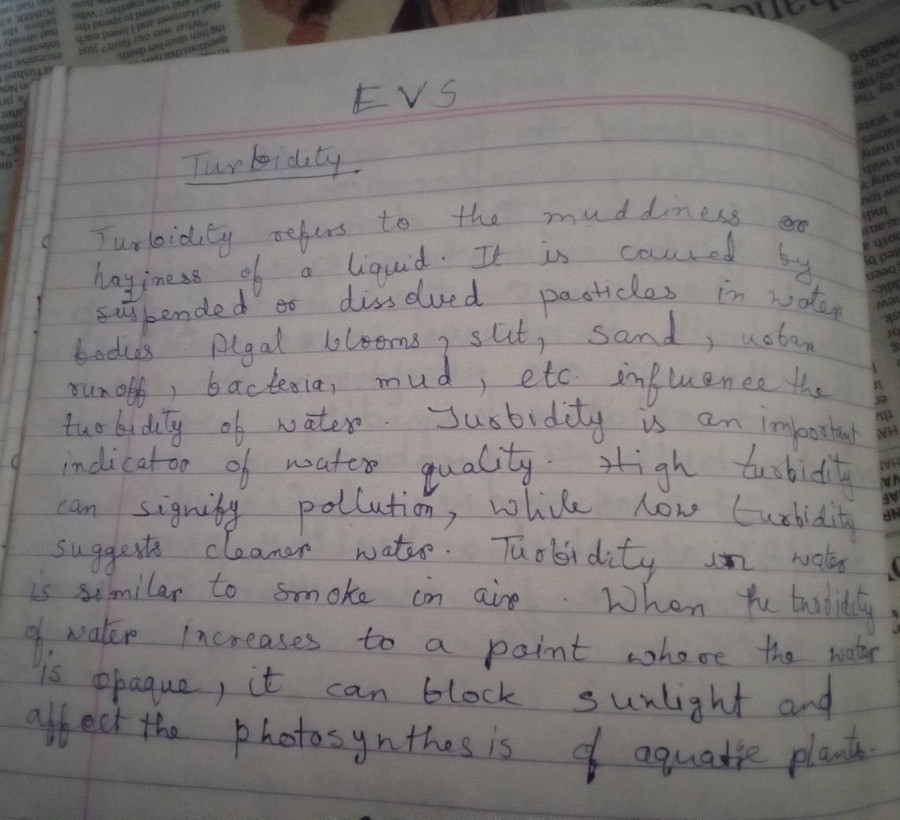 EVS
Turbidity
Turbidity refers to the muddiness or
haziness of a liquid. It is caused by
suspended or dissolved particles in water
bodies. Algal blooms, silt, sand, urban
runoff, bacteria, mud, etc. influence the
turbidity of water. Turbidity is an important
indicator of water quality. High turbidity
can signify pollution, while low turbidity
suggests cleaner water. Turbidity in water
is similar to smoke in air. When the turbidity
of water increases to a point where the water
is opaque, it can block sunlight and
affect the photosynthesis of aquatic plants.